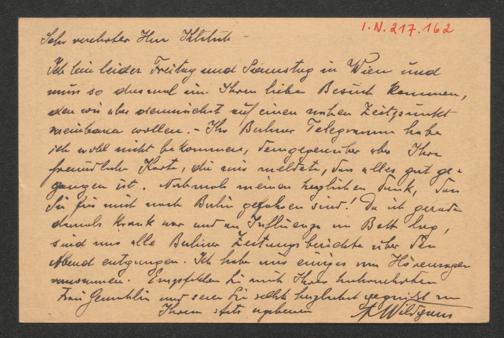 I.N. 217.162
Sehr verehrter Herr
Ich bin leider Freitag und Samstag in Wien und
muss so diesmal um Ihren lieben Besuch kommen,
den wir aber demnächst auf einen nahen Zeitpunkt
vereinbaren wollen. – Ihr Berliner Telegramm habe
ich wohl nicht bekommen, demgegenüber aber Ihre
freundliche Karte, die mir meldete, dass alles gut ge-
gangen ist. Nochmals meinen herzlichen Dank, dass
Sie für mich nach Berlin gefahren sind! Da ich gerade
damals krank war und an Influenza im Bett lag,
sind mir alle Berliner Zeitungsberichte über den
Abend entgangen. Ich habe nur einiges vom Hörensagen
vernommen. Empfehlen Sie mich Ihrer hochverehrten
Frau Gemahlin und seien Sie selbst herzlichst gegrüßt von
Ihrem stets ergebenen A. Wildgans